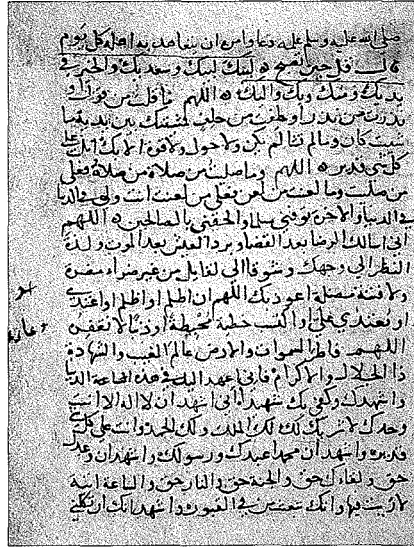 صلى الله عليه وسلم علمه دعاء وامره ان يتعاهد به اهله كل يوم
قال قل حين تصبح لبيك اللهم لبيك وسعديك والخير في
يديك ومنك وبك واليك اللهم ما قلت من قول او
نذرت من نذر او حلفت من حلف فمشيتك بين يديه ما
شيت كان وما لم تشا لم يكن ولا حول ولا قوة الا بك انك على
كل شي قدير اللهم وما صليت من صلاة فعلى
من صليت وما لعنت من لعن فعلى من لعنت انت وليي
في الدنيا والاخرة توفني مسلما والحقني بالصالحين اللهم
اني اسالك الرضا بعد القضا وبرد العيش بعد الموت ولذة
النظر الى وجهك وشوقا الى لقايك من غير ضراء مضرة
ولا فتنة مضلة اعوذ بك اللهم ان اظلم او اظلم او اعتدي
او يعتدى علي او اكسب خطية محبطة او ذنبا لا تغفره
اللهم فاطر السموات والارض عالم الغيب والشهادة
ذا الجلال والاكرام فاني اعهد اليك في هذه الحياة الدنيا
واشهدك وكفى بك شهيدا اني اشهد ان لا اله الا انت
وحدك لا شريك لك لك الملك ولك الحمد وانت على كل شي
قدير واشهد ان محمدا عبدك ورسولك واشهد ان وعدك
حق ولقاءك حق والجنة حق والنار حق والساعة اتية
لا ريب فيها وانك تبعث من في القبور واشهد انك ان تكلني